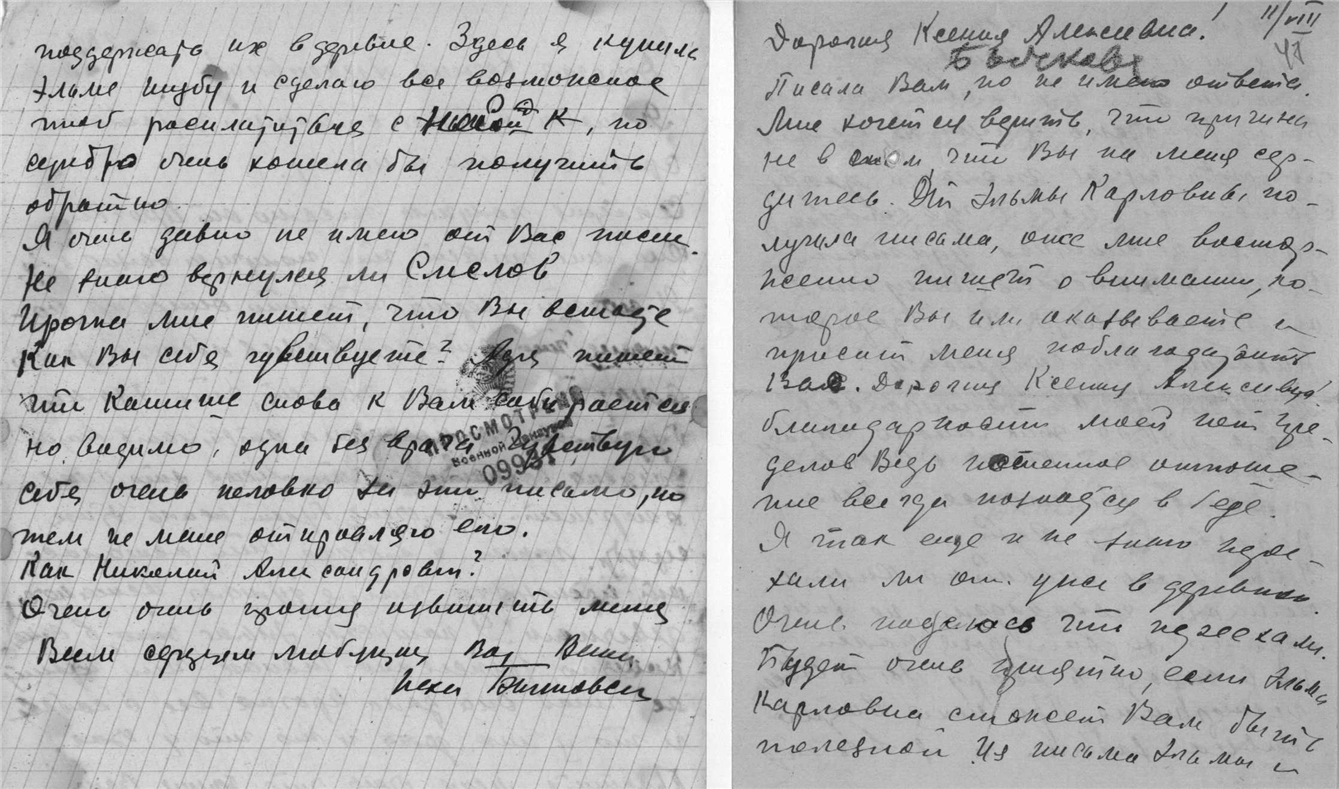 поддержать их в деревне. Здесь я купила
Эльме шубу и сделаю все возможное
чтоб расплатиться с К, но
серебро очень хотела бы получить
обратно.
Я очень давно не имею от Вас писем.
Не знаю вернулся ли Смелов
Ирочка мне пишет, что Вы
Как Вы себя чувствуете? пишет
что снова к Вам собирается
но, видимо, одна без чувствую
себя очень неловко за это письмо, но
тем не мене отправляю его.
Как Николай Александрович?
Очень очень прошу извинить меня
Всем сердцем любящая Вас Ваша
ПРОСМОТРЕНО
Военной Цензурой
Дорогая Ксения Алексеевна! 11/VIII
Бычкова 41
Писала Вам, но не имею ответа.
Мне хочется верить, что причина
не в том, что Вы на меня сер-
дитесь. От Эльмы Карловны по-
лучила письма, она мне востор-
женно пишет о внимании, ко-
торое Вы им оказываете и
просит меня поблагодарить
Вас. Дорогая Ксения Алексеевна!
благодарности моей нет пре-
делов Ведь отноше-
ние всегда познаётся в беде.
Я так еще и не знаю перее-
хали ли они уже в деревню.
Очень надеюсь что переехали.
Будет очень приятно, если Эльма
Карловна сможет Вам быть
полезной Из письма Эльмы и